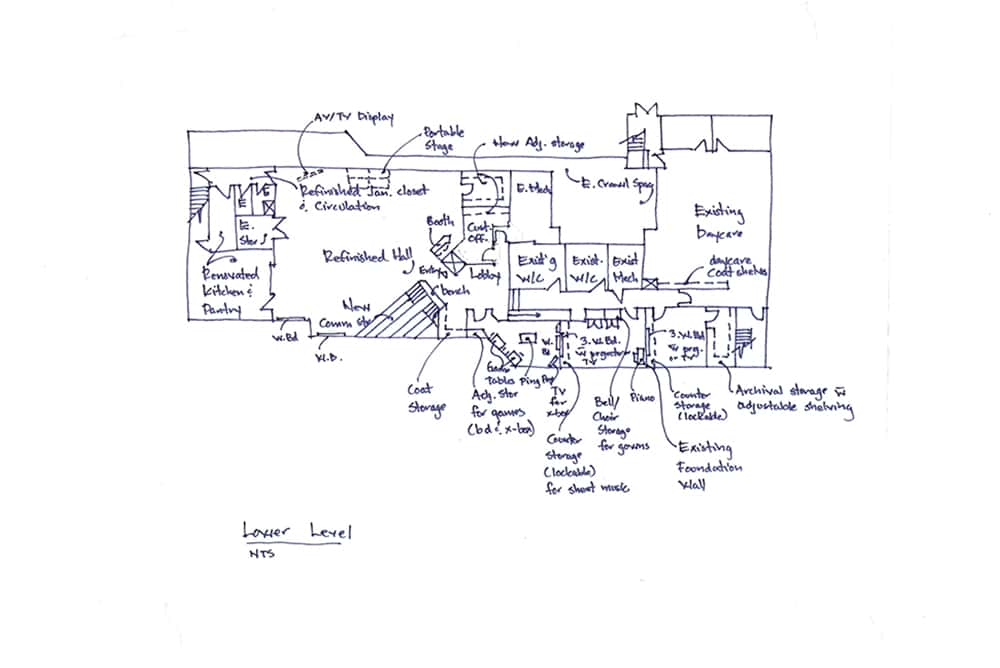 AV/TV Display
Portable
Stage
New Adj. storage
Refinished Jan. closet
& Circulation
E. Mech
E. Crawl Spac
E
E
E.
Stor
Booth
Cust.
Off.
Existing
Daycare
Refinished Hall
Entry
Lobby
Exist'g
W/C
Exist.
W/C
Exist
Mech
daycare
Coat shelves
Renovated
Kitchen &
Pantry
bench
New
Comm Str
W.Bd
W.B.
W.
Bd
3. W. Bd.
w projector
TV
3. W. Bd
w proj.
or TV
Game
Tables
Ping Pong
Coat
Storage
Adj. Stor
for games
(bd & x-box)
TV
for
x-box
Counter
Storage
(lockable)
for sheet music
Bell/
Choir
Storage
for gowns
Piano
Counter
Storage
(lockable)
Existing
Foundation
Wall
Archival storage w
adjustable shelving
Lower Level
NTS